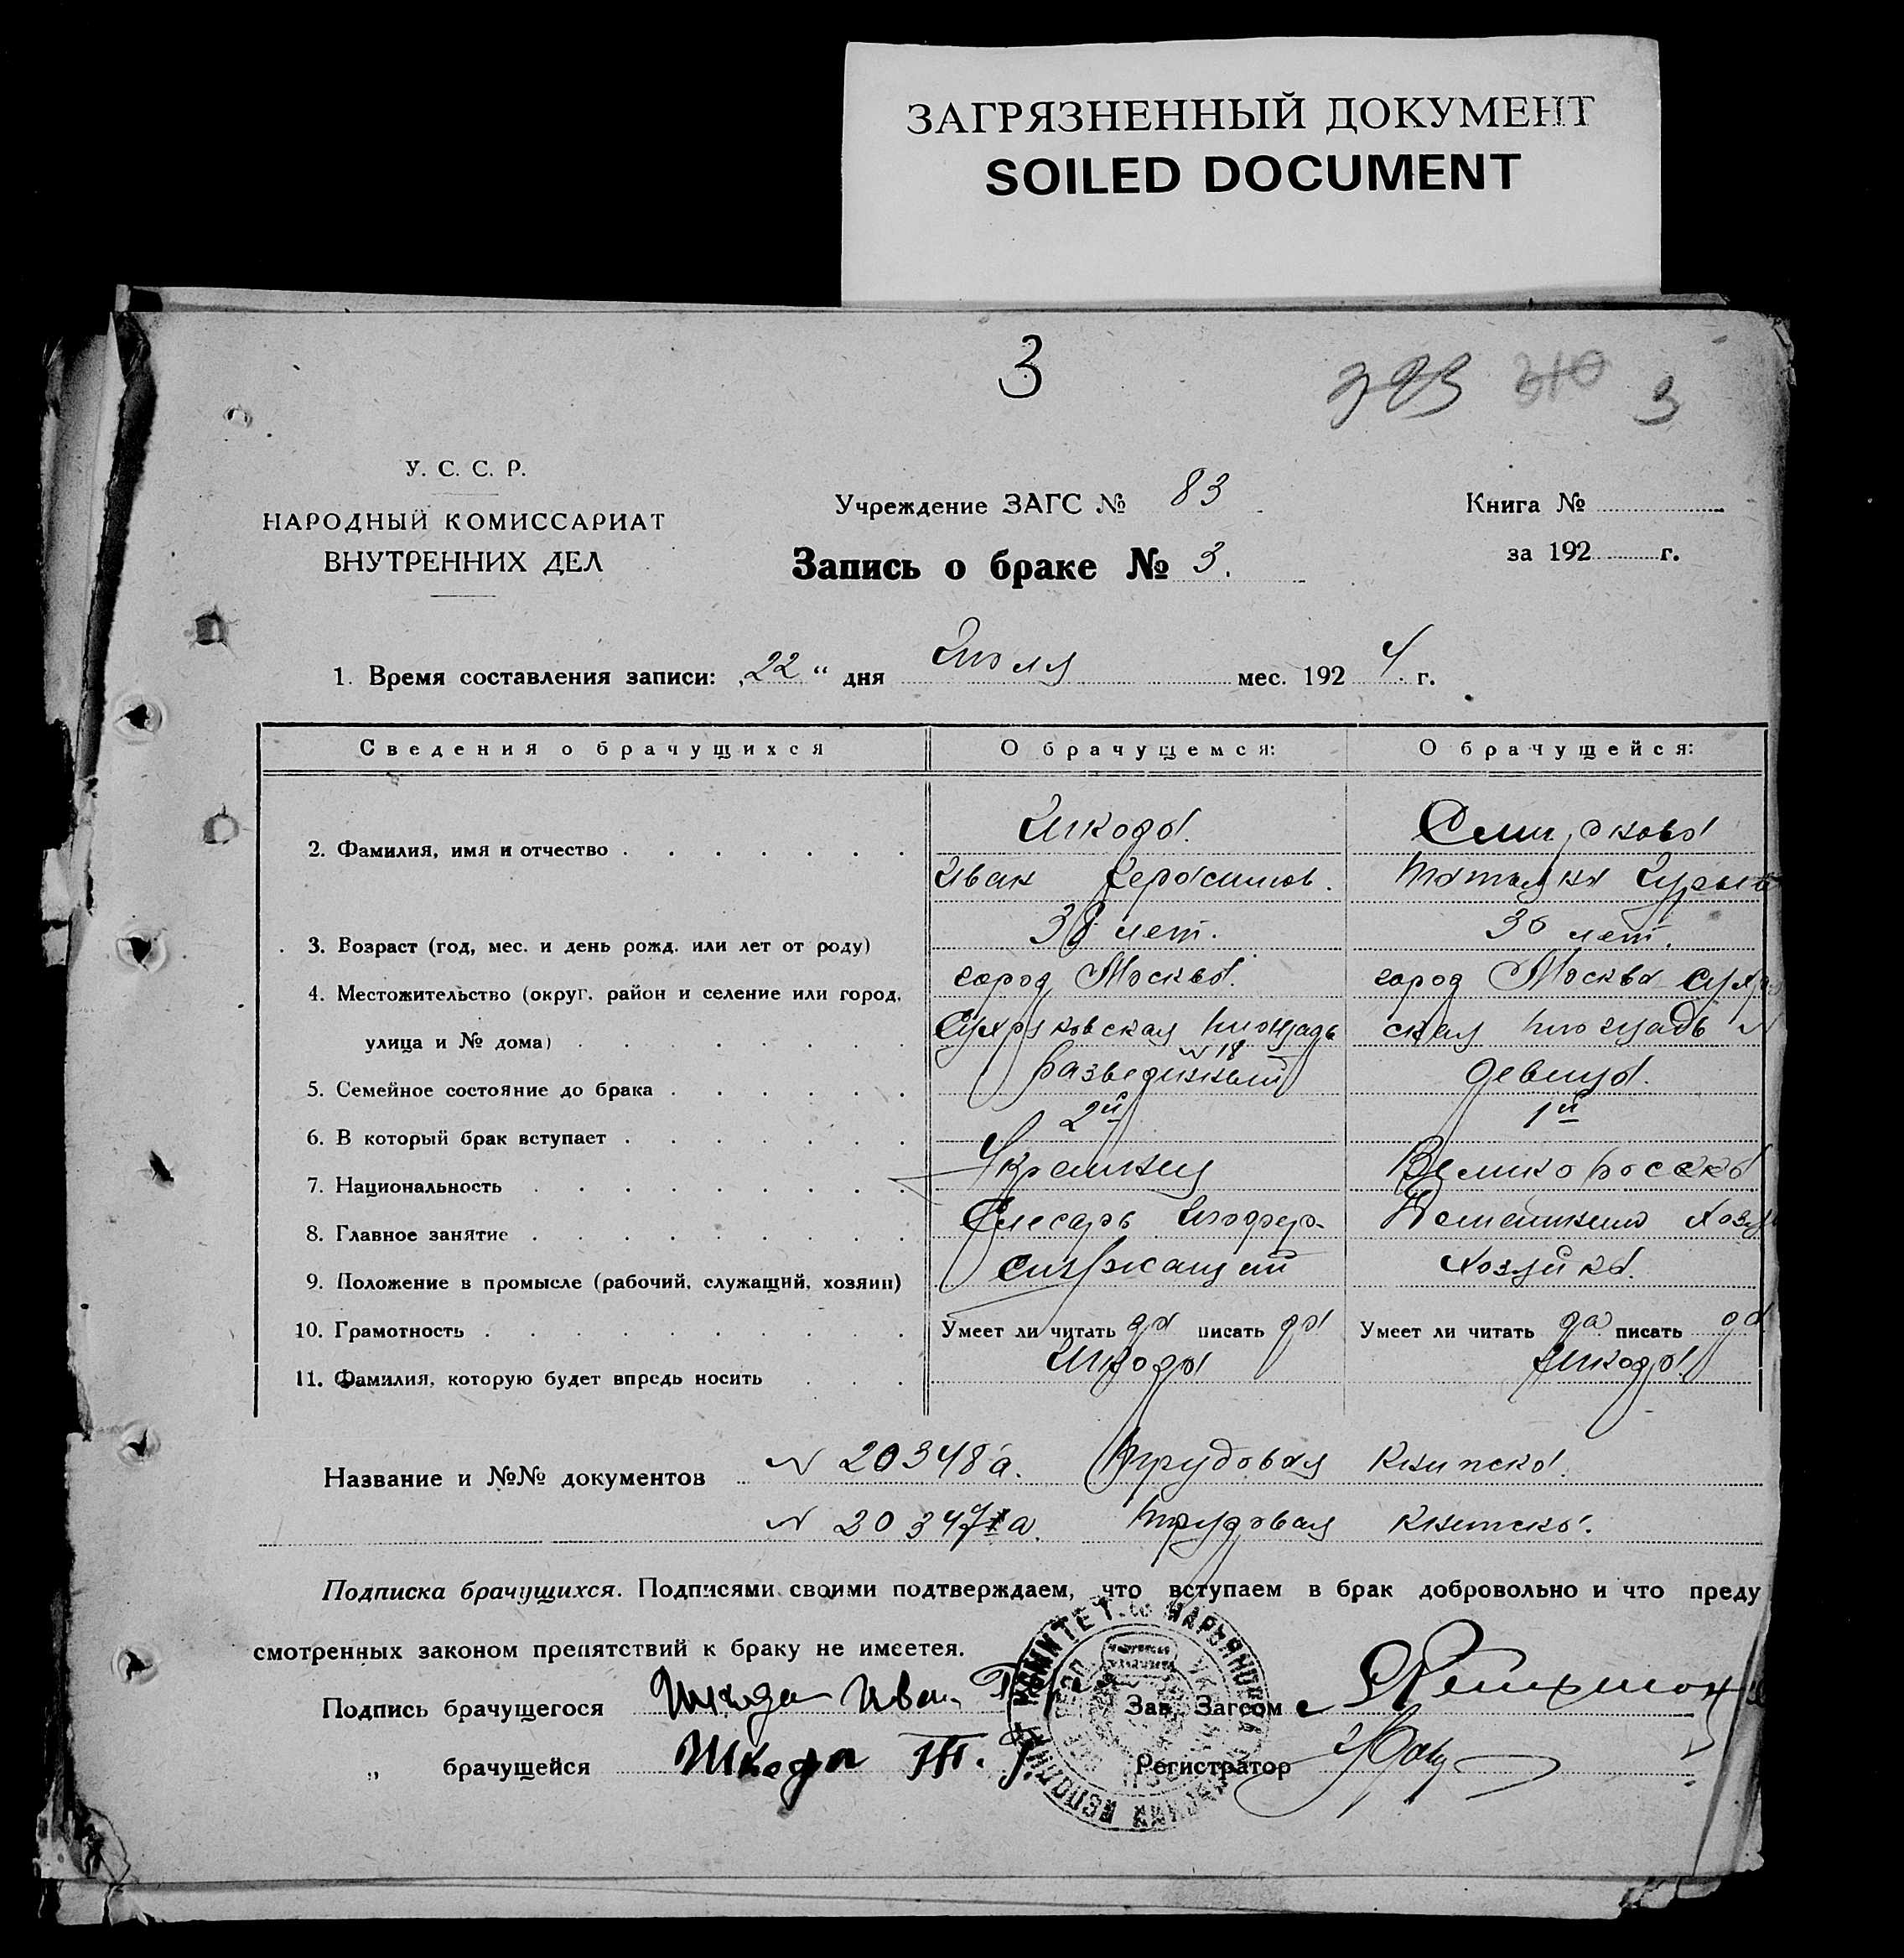 ЗАГРЯЗНЕННЫЙ ДОКУМЕНТ
SOILED DOCUMENT
3
3
У. С. С. Р.
НАРОДНЫЙ КОМИССАРИАТ
ВНУТРЕННИХ ДЕЛ
Учреждение ЗАГС № 83
Запись о браке № 3.
Книга №
за 192 г.
1. Время составления записи: „22“ дня Июля мес. 1924 г.
Сведения о брачущихся О брачущемся: О брачущейся:
2. Фамилия, имя и отчество Шкода.
Иван Герасимов. Татьяна
3. Возраст (год, мес. и день рожд. или лет от роду) 38 лет. 30 лет.
4. Местожительство (округ, район и селение или город, город Москва. город Москва
улица и № дома) площадь №18 ская площадь №
5. Семейное состояние до брака разведенный девица.
6. В который брак вступает 2й 1й
7. Национальность Украинец Великоросска
8. Главное занятие Слесарь Шофер Домашняя
9. Положение в промысле (рабочий, служащий, хозяин) служащий хозяйка.
10. Грамотность Умеет ли читать да писать да Умеет ли читать да писать да
11. Фамилия, которую будет впредь носить Шкода Шкода
Название и №№ документов № 20348а. Трудовая книжка.
№ 20347а. трудовая книжка.
Подписка брачущихся. Подписями своими подтверждаем, что вступаем в брак добровольно и что преду
смотренных законом препятствий к браку не имеется.
Подпись брачущегося Шкода Иван Зав. Загсом
„ брачущейся Шкода Т. Г. Регистратор